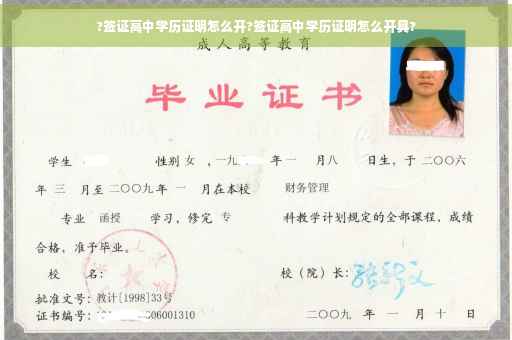 ?签证高中学历证明怎么开?签证高中学历证明怎么开具?
成人高等教育
毕业证书
学生 性别 女 ,一九 年一 月八 日生,于二〇〇六
年 三 月至二〇〇九年 一 月在本校 财务管理
专业 函授 学习,修完 专 科教学计划规定的全部课程,成绩
合格,准予毕业。
校 名: 校(院)长:
批准文号:教计[1998]33号
证书编号: 006001310 二〇〇九 年 一 月 十 日